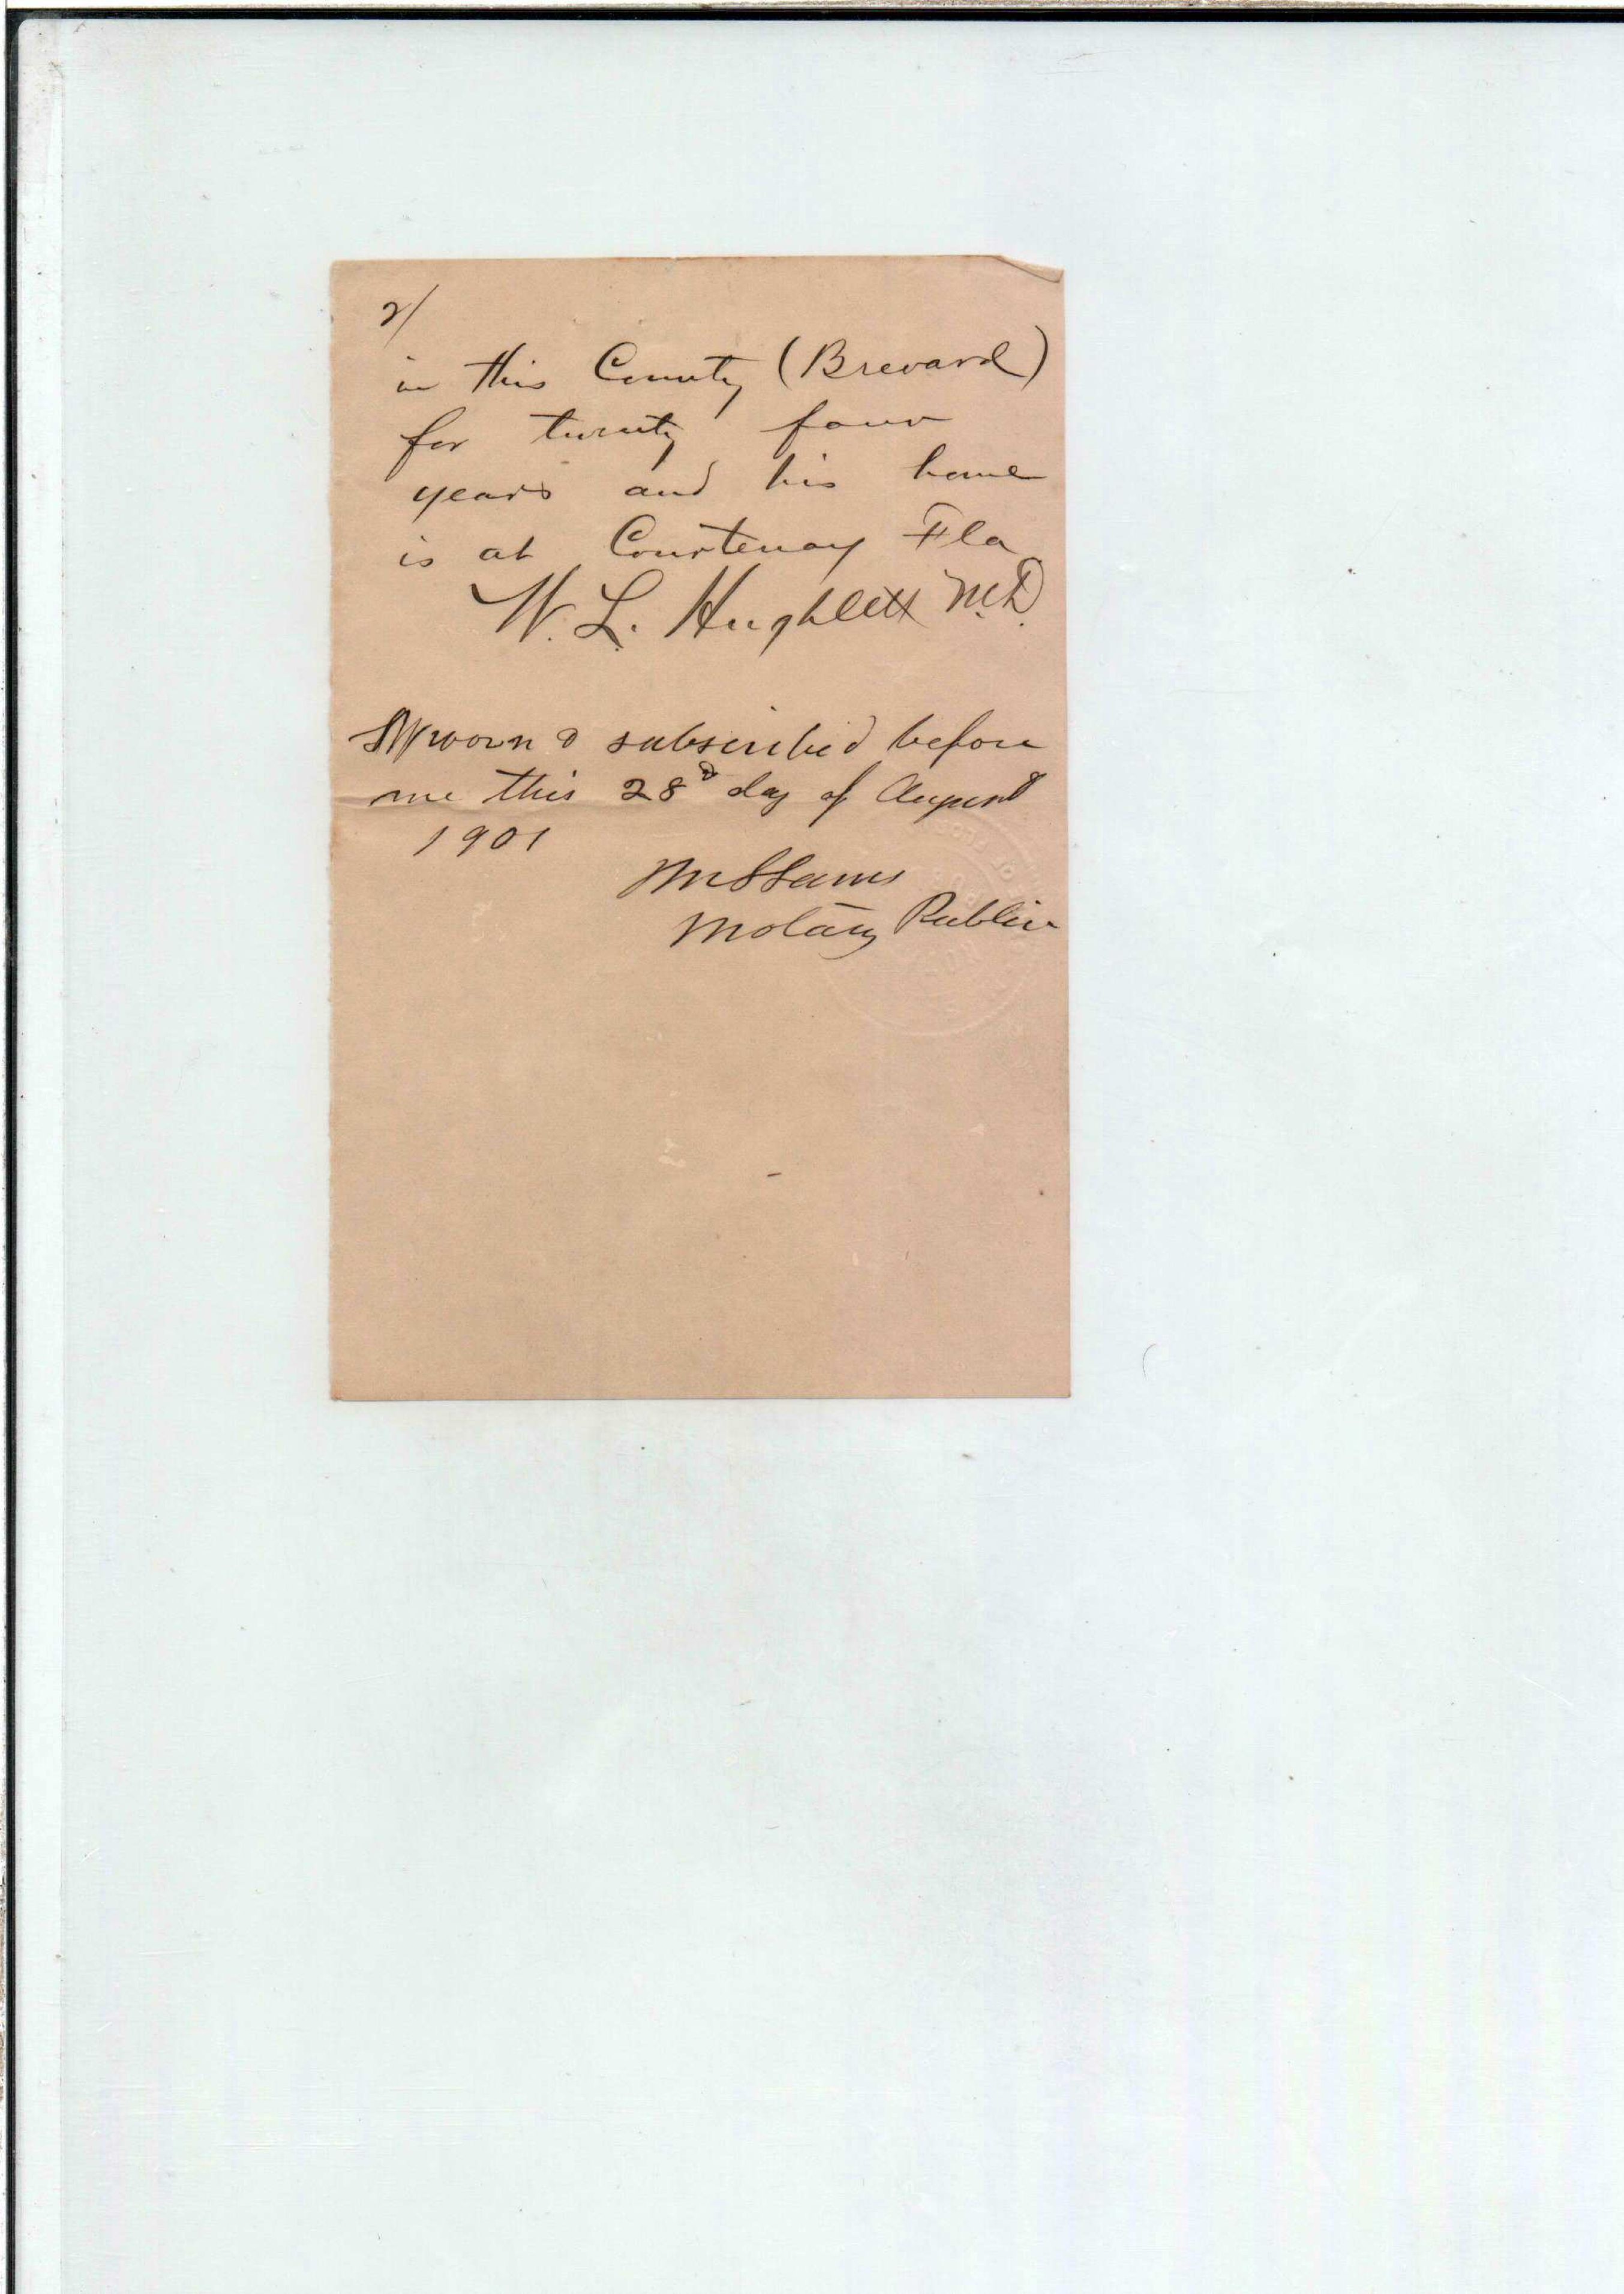 2/
in this County (Brevard)
for twenty four
years and his home
is at Courtenay Fla
W. L. Hughlett M.D.
Sworn & subscribed before
me this 28d day of August
1901
Notary Public